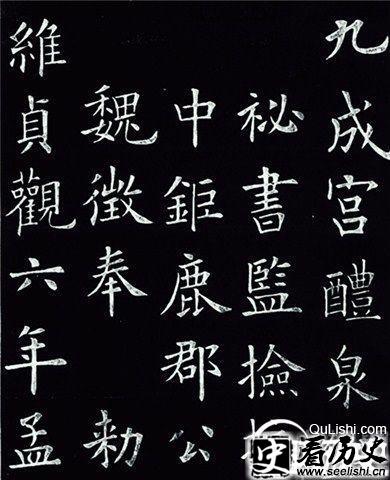 九成宫醴泉
祕書監撿
中鉅鹿郡公
魏徵奉 勅
維貞觀六年孟
QuLishi.com
史 看历史
www.seelishi.com